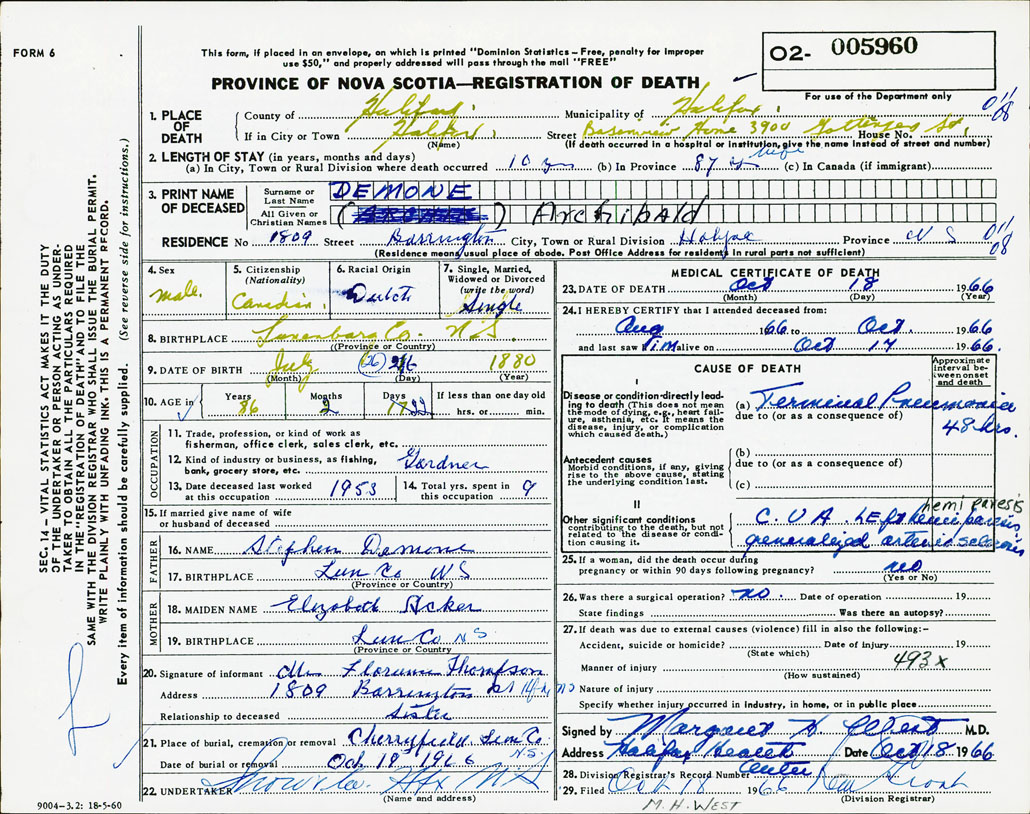 FORM 6
This form, if placed in an envelope, on which is printed "Dominion Statistics – Free, penalty for improper
use $50," and properly addressed will pass through the mail "FREE"
PROVINCE OF NOVA SCOTIA—REGISTRATION OF DEATH
02- 005960
For use of the Department only
1. PLACE OF DEATH
County of Halifax Municipality of Halifax 011 08
If in City or Town Halifax Street 3900 Gottingen St. House No.
(Name) (If death occurred in a hospital or institution, give the name instead of street and number)
2. LENGTH OF STAY (in years, months and days) life
(a) In City, Town or Rural Division where death occurred 10 yrs (b) In Province 87 yrs (c) In Canada (if immigrant)
3. PRINT NAME OF DECEASED
Surname or Last Name DEMONE
All Given or Christian Names ( ) Archibald
RESIDENCE No 1809 Street Barrington City, Town or Rural Division Halifax Province N S 011 08
(Residence means usual place of abode. Post Office Address for residents in rural parts not sufficient)
4. Sex male.
5. Citizenship (Nationality) Canadian.
6. Racial Origin Dutch
7. Single, Married, Widowed or Divorced (write the word) Single
8. BIRTHPLACE Lunenburg Co. N.S.
(Province or Country)
9. DATE OF BIRTH July 26 1880
(Month) (Day) (Year)
10. AGE in Years 86 Months 2 Days 22 If less than one day old hrs. or min.
OCCUPATION
11. Trade, profession, or kind of work as fisherman, office clerk, sales clerk, etc.
12. Kind of industry or business, as fishing, bank, grocery store, etc. Gardner
13. Date deceased last worked at this occupation 1953
14. Total yrs. spent in this occupation 9
15. If married give name of wife or husband of deceased
FATHER
16. NAME Stephen Demone
17. BIRTHPLACE Lun Co N S
(Province or Country)
MOTHER
18. MAIDEN NAME Elizabeth Acker
19. BIRTHPLACE Lun Co N S
(Province or Country)
20. Signature of informant Mrs Florence Thompson
Address 1809 Barrington St Hfx NS
Relationship to deceased Sister
21. Place of burial, cremation or removal Cherryfield Lun Co. NS.
Date of burial or removal Oct 18 1966
22. UNDERTAKER Hfx NS
(Name and address)
9004-3.2: 18-5-60
MEDICAL CERTIFICATE OF DEATH
23. DATE OF DEATH Oct 18 1966
(Month) (Day) (Year)
24. I HEREBY CERTIFY that I attended deceased from:
Aug 1966 to Oct. 1966
and last saw him alive on Oct 17 1966.
CAUSE OF DEATH
Approximate interval between onset and death
I
Disease or condition directly leading to death (This does not mean the mode of dying, e.g., heart failure, asthenia, etc. It means the disease, injury, or complication which caused death.)
(a) Terminal Pneumonia
due to (or as a consequence of) 48 hrs.
Antecedent causes
Morbid conditions, if any, giving rise to the above cause, stating the underlying condition last.
(b)
due to (or as a consequence of)
(c)
II
Other significant conditions contributing to the death, but not related to the disease or condition causing it.
hemi paresis
C.V.A. Left hemi paresis
generalized arterio sclerosis
25. If a woman, did the death occur during pregnancy or within 90 days following pregnancy? no
(Yes or No)
26. Was there a surgical operation? no. Date of operation 19
State findings Was there an autopsy?
27. If death was due to external causes (violence) fill in also the following:–
Accident, suicide or homicide? Date of injury 19
(State which)
Manner of injury 493x
(How sustained)
Nature of injury
Specify whether injury occurred in industry, in home, or in public place
Signed by Margaret M.D.
Address Halifax Health Center Date Oct 18 1966
28. Division Registrar's Record Number
29. Filed Oct 18 1966
(Division Registrar)
M. H. WEST
SEC. 14 – VITAL STATISTICS ACT MAKES IT THE DUTY
OF THE UNDERTAKER OR PERSON ACTING AS UNDER-
TAKER TO OBTAIN ALL THE PARTICULARS REQUIRED
IN THE "REGISTRATION OF DEATH" AND TO FILE THE
SAME WITH THE DIVISION REGISTRAR WHO SHALL ISSUE THE BURIAL PERMIT.
WRITE PLAINLY WITH UNFADING INK. THIS IS A PERMANENT RECORD.
Every item of information should be carefully supplied. (See reverse side for instructions.)